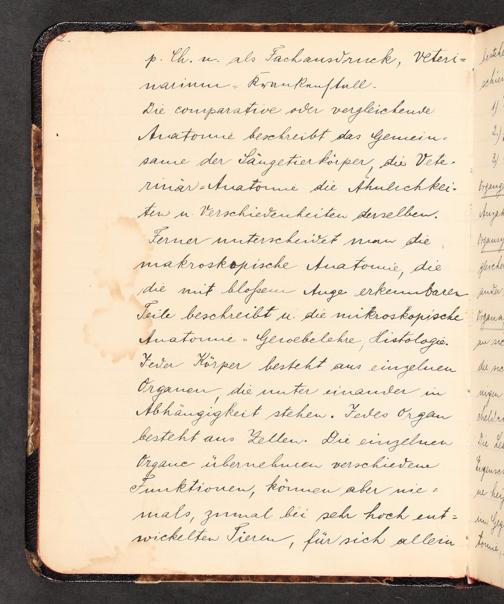 p. Ch. n. als Fachausdruck, Veteri=
narium = Krankenstall.
Die comparative oder vergleichende
Anatomie beschreibt das Gemein-
same der Säugetierkörper, die Vete-
rinär=Anatomie die Ähnlichkei-
ten u. Verschiedenheiten derselben.
Ferner unterscheidet man die
makroskopische Anatomie, die
die mit bloßem Auge erkennbaren
Teile beschreibt u. die mikroskopische
Anatomie = Gewebelehre, Histologie.
Jeder Körper besteht aus einzelnen
Organen, die unter einander in
Abhängigkeit stehen. Jedes Organ
besteht aus Zellen. Die einzelnen
Organe übernehmen verschiedene
Funktionen, können aber nie=
mals, zumal bei sehr hoch ent=
wickelten Tieren, für sich allein